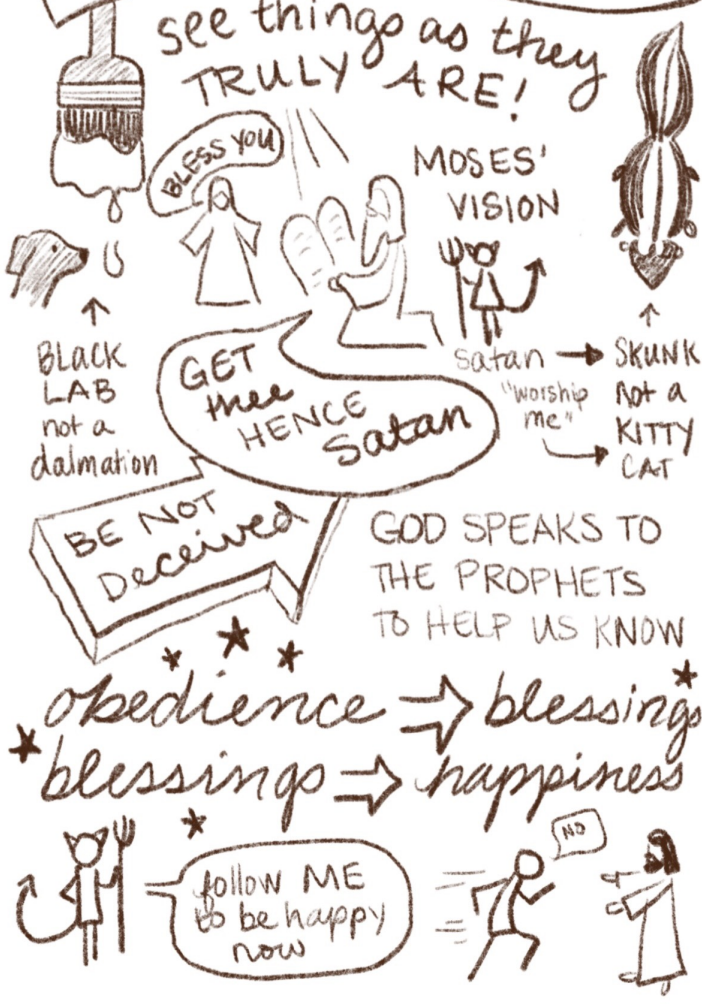 see things as they
TRULY ARE!
BLESS YOU
MOSES'
VISION
BLACK
LAB
not a
dalmation
GET
thee
HENCE
Satan
satan
"worship
me"
SKUNK
not a
KITTY
CAT
BE NOT
Deceived
GOD SPEAKS TO
THE PROPHETS
TO HELP US KNOW
obedience ⇒ blessings
blessings ⇒ happiness
follow ME
to be happy
now
NO